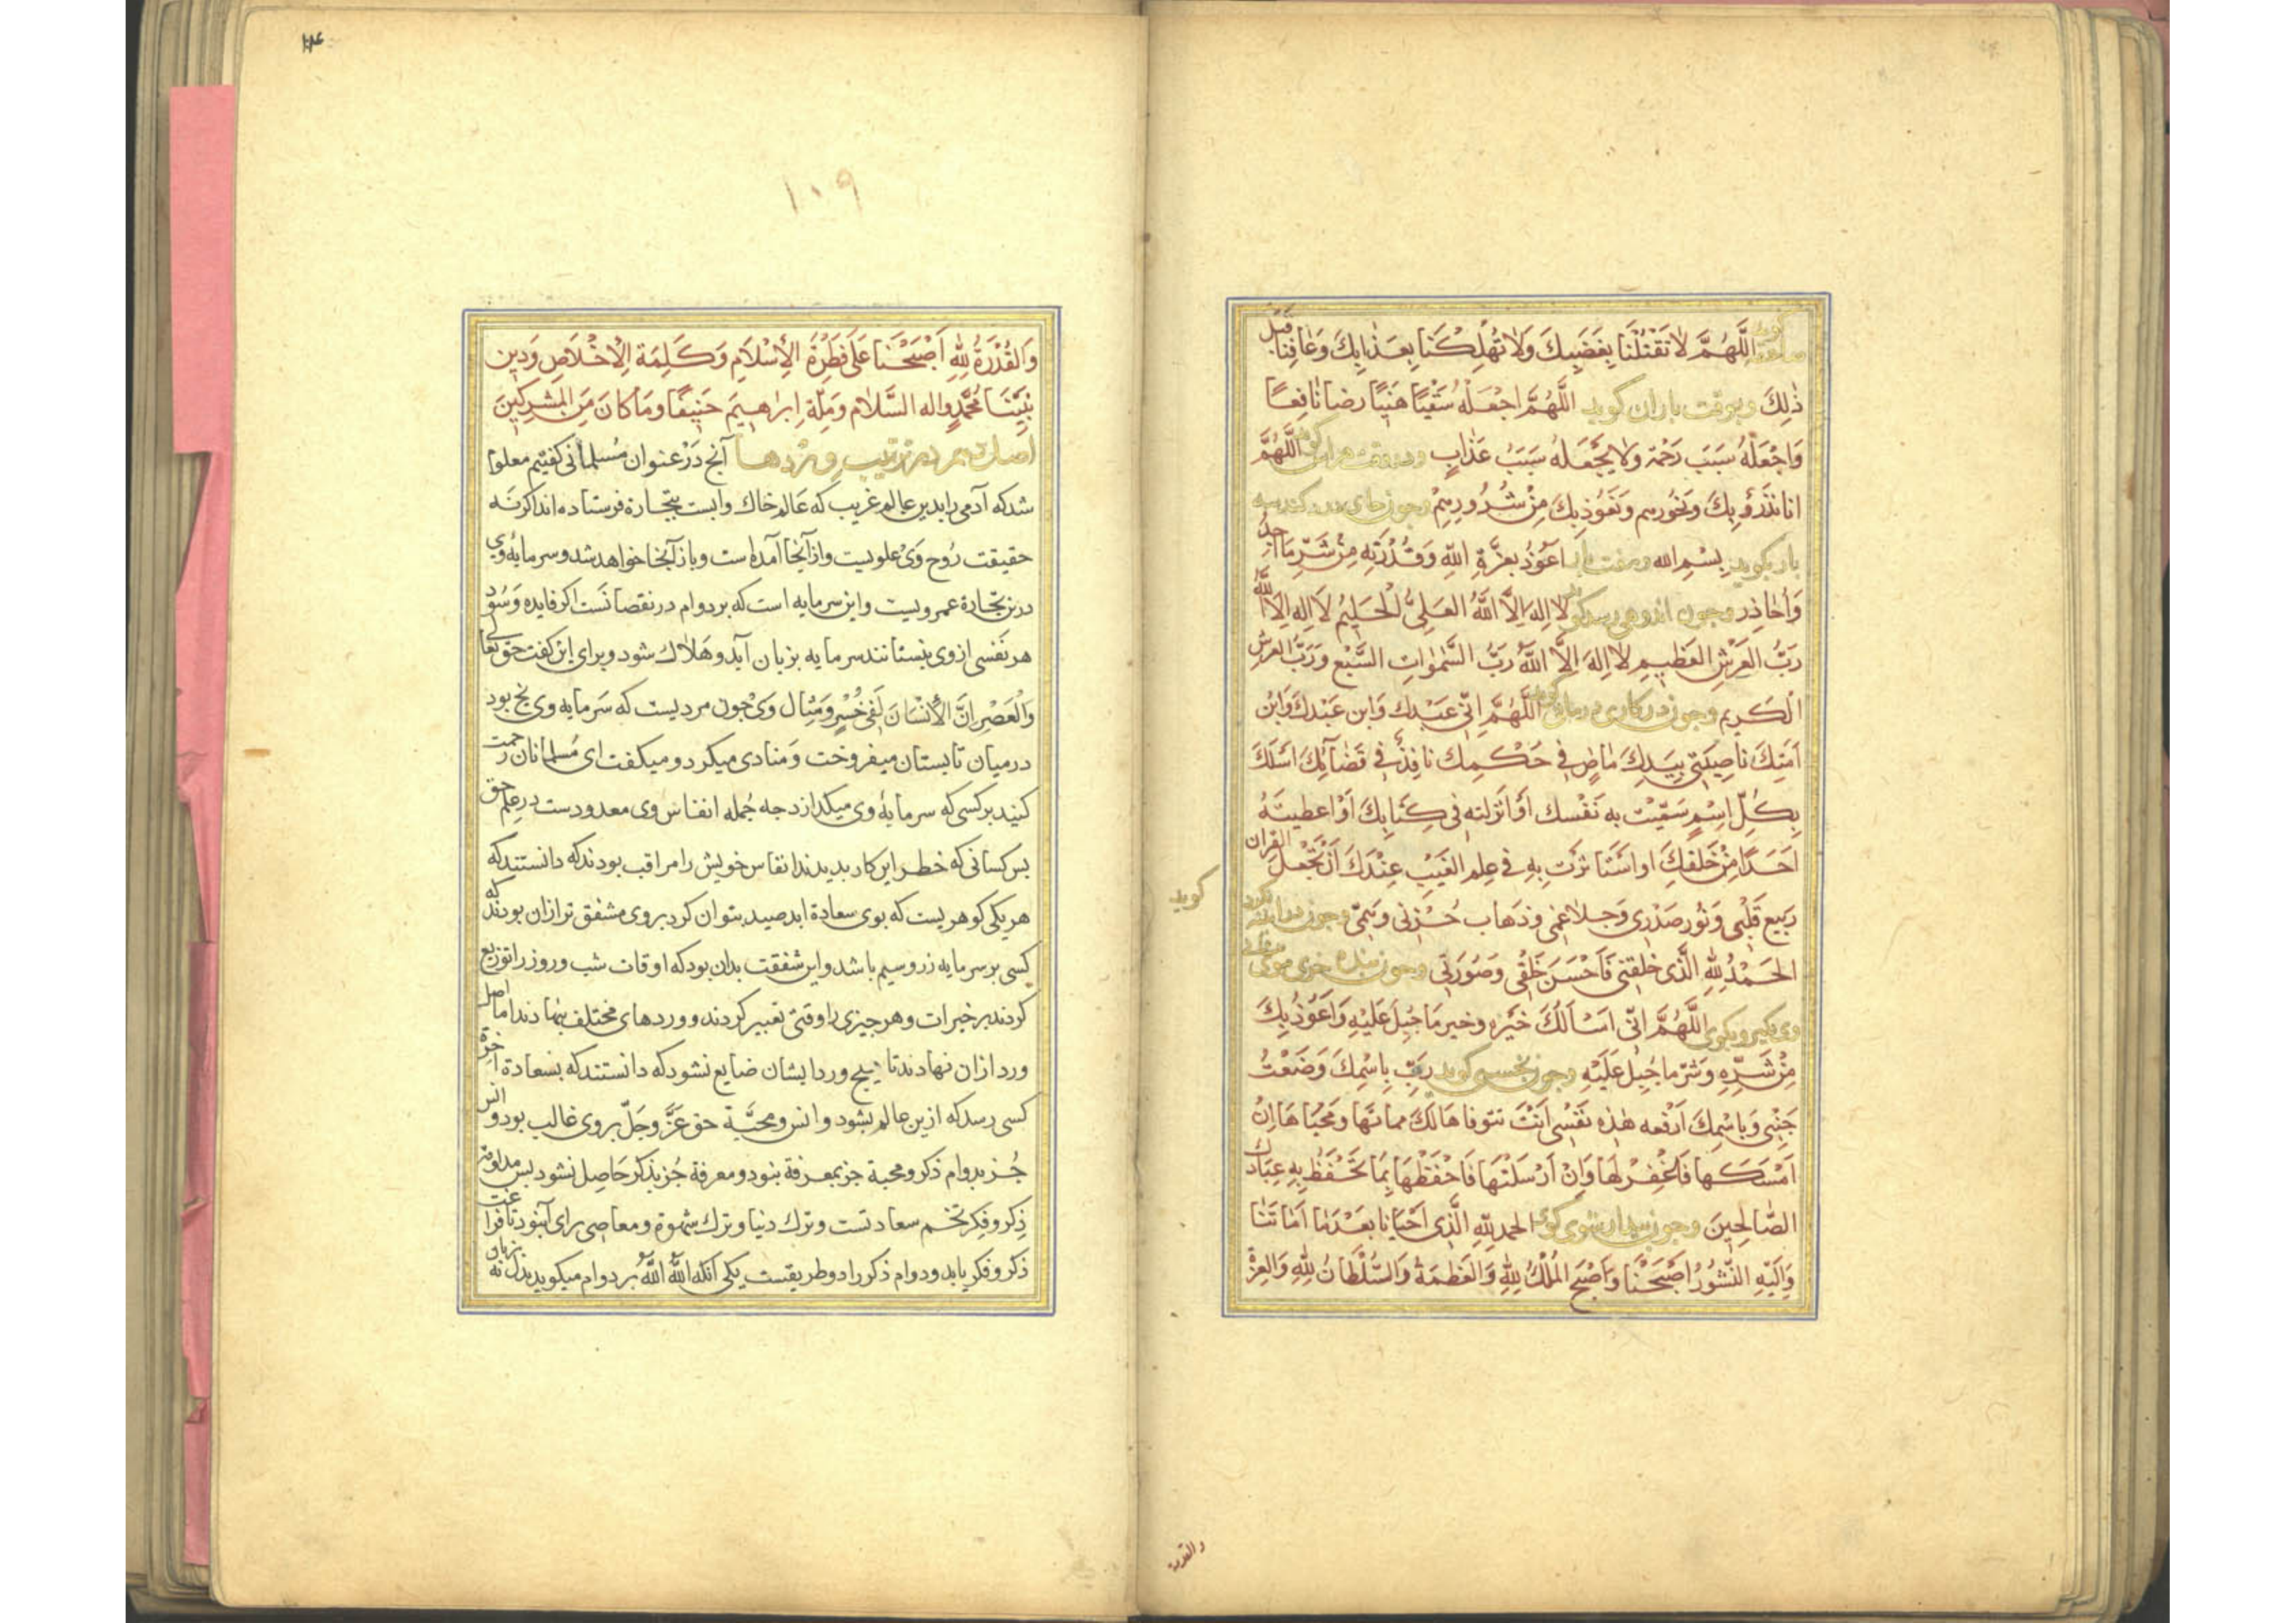 گوید صاعقه اللَّهُمَّ لَا تَقْتُلْنَا بِغَضَبِكَ وَلَا تُهْلِكْنَا بِعَذَابِكَ وَعَافِنَا قَبْلَ
ذٰلِكَ وبوقت باران کوید اللَّهُمَّ اجْعَلْهُ سُقْيًا هَنِيًا رضا نَافِعًا
وَاجْعَلْهُ سَبَبَ رَحْمَة ولا يَجْعَلهُ سَبَبُ عَذَابٍ ودر وقت هراس کوید اللَّهُمَّ
انا نَذْرَؤُبِكَ ونَحُورِهِم وَنَعُوذ بِكَ مِنْ شُرُورِهِمْ وجون جای درد کند سه
بار بکوید بِسْمِ الله وهفت بار اَعُوذُ بِعِزَّةِ اللهِ وَقُدْرَتِه مِنْ شَرِّ مَا اَجِدُ
وَاُحَاذِر وجون اندوهی رسد کوید لا اِلهَ اِلَّا اللهُ العَلِىُّ الْحَلِيمُ لَا اِلهَ اِلَّا اللهُ
رَبُّ العَرْشِ العَظِيمِ لَا اِلهَ اِلَّا اللهُ رَبُّ السَّمٰوَاتِ السَّبْع وَرَبُّ العرش
الْكَرِيم وجون در کاری درمانی کوید اللَّهُمَّ اِنِّى عَبْدك وَابن عَبْدكَ وَابْن
اَمَتِكَ نَاصِيَتِى بِيَدِكَ مَاضٍ فِى حُكْمِكَ نافِذٌ فِى قَضَائِكَ اَسْلَكَ
بِكُلِّ اِسْمٍ سَمَّيْتَ بِه نَفْسك اَوْ اَنْزَلته فى كِتَابِكَ اَوْ اعطيتَهُ
اَحَدًا مِنْ خَلْقِكَ او استَاثرْتَ بِهِ فى عِلم الغَيْبِ عِنْدَكَ اَنْ تَجْعَلَ القران
رَبِيع قَلْبى وَنُور صَدْرِى وَجلاء غَمّى وذهاب حُزْنى وَهَمّى وجون در آینه نکرد
کوید
الحَمْدُ لِلّهِ الَّذى خلقنى فَاَحْسَنَ خَلْقى وَصُورَتى وجون بنده خری موی پیشانی
وی بکیر وبکوی اللَّهُمَّ اِنّى اَسْاَلُكَ خَيْرَه وخير مَا جُبِلَ عَلَيْهِ وَاَعُوذُ بِكَ
مِنْ شَرِّهِ وَشَرّ ما جُبِلَ عَلَيْهِ وجون بخسبی کوید رَبِّ بِاسْمِكَ وَضَعْتُ
جَنْبى وَبِاسْمِكَ اَرْفَعه هٰذِه نَفْسى اَنْتَ تتوفاها لَكَ مماتها ومحياها اِنْ
اَمْسَكتها فَاغْفِرْ لَها وَاِنْ اَرْسَلتَها فَاحْفَظْهَا بِمَا تَحْفَظُ بِه عِبَادَكَ
الصَّالِحِينَ وجون بیدار شوی کوی الحمدلِلّهِ الَّذى اَحْيَانا بَعْدَمَا اَمَاتَنَا
وَاِلَيْهِ النُّشُورُ اَصْبَحْنَا وَاَصْبَحَ المُلْكُ لِلّهِ وَالعَظمَةُ وَالسُّلْطَانُ لِلّهِ وَالعِزَّةُ
والقدرة
۱۰۹
وَالقُدْرَةُ لِلّهِ اَصْبَحْنَا عَلى فِطْرَةِ الاِسْلَامِ وَكَلِمَة الِاخْلَاصِ وَدِينِ
نَبِيِّنَا مُحَمَّدٍ واله السَّلَام وَمِلَّة اِبرَاهِيمَ حَنِيفًا وما كانَ مِنَ المُشْرِكِينَ
اصل دهم در ترتیب وردها آنج دَرْ عنوان مُسلمانی کفتیم معلوم
شد که آدمی را بدین عالم غریب که عالم خاك وابست بتجارة فرستاده اند اکرنه
حقیقت رُوح وَیْ علویست واز آنجا آمده است وباز آنجا خواهد شد وسرمایهٔ وی
درین تجارة عمر ویست واین سرمایه است که بر دوام در نقصانست اکر فایده وَسُود
هر نَفسی ازوی بنستانند سرمایه بزیان آید وهَلاك شود وبرای این کفت حق تعالی
وَالعَصْرِ اِنَّ الاِنْسَانَ لَفى خُسْرٍ ومثال وَیْ جون مردیست که سَرمایه وی یخ بود
درمیان تابستان میفروخت وَمنادی میکرد ومیکفت ای مُسلمانان رحمت
کنید بر کسی که سرمایهٔ وی میکدازد جه جُمله انفاس وی معدودست در علم حق
بس کسانی که خطر این کار بدیدند انفاس خویش را مراقب بودند که دانستند که
هر یکی کوهریست که بوی سعادة ابد صید بتوان کرد بر وی مشفق تر ازان بودند که
کسی بر سرمایه زر وسیم باشد واین شفقت بدان بود که اوقات شب وروز را توزیع
کردند بر خیرات وهر جیزی را وقتی تعبیر کردند ووردهای مختلف بنهادند اما اصل
ورد ازان نهادند تا هیچ ورد ایشان ضایع نشود که دانستند که بسعادة آخرة
کسی رسد که ازین عالم بشود وانس ومحبّة حق عَزَّ وَجَلّ بر وی غالب بود وانس
جُز بدوام ذکر ومحبة جز بمعرفة بنود ومعرفة جُز بذکر حَاصِل نشود بس مداومة
ذِکر وفِکر تخم سعادتست وترك دنیا وترك شهوة ومعاصی برای آن بود تا فراغت
ذکر وفکر یابد ودوام ذکر را دو طریقست یکی آنکه اللهُ اللهُ بر دوام میکوید بدل نه بزبان